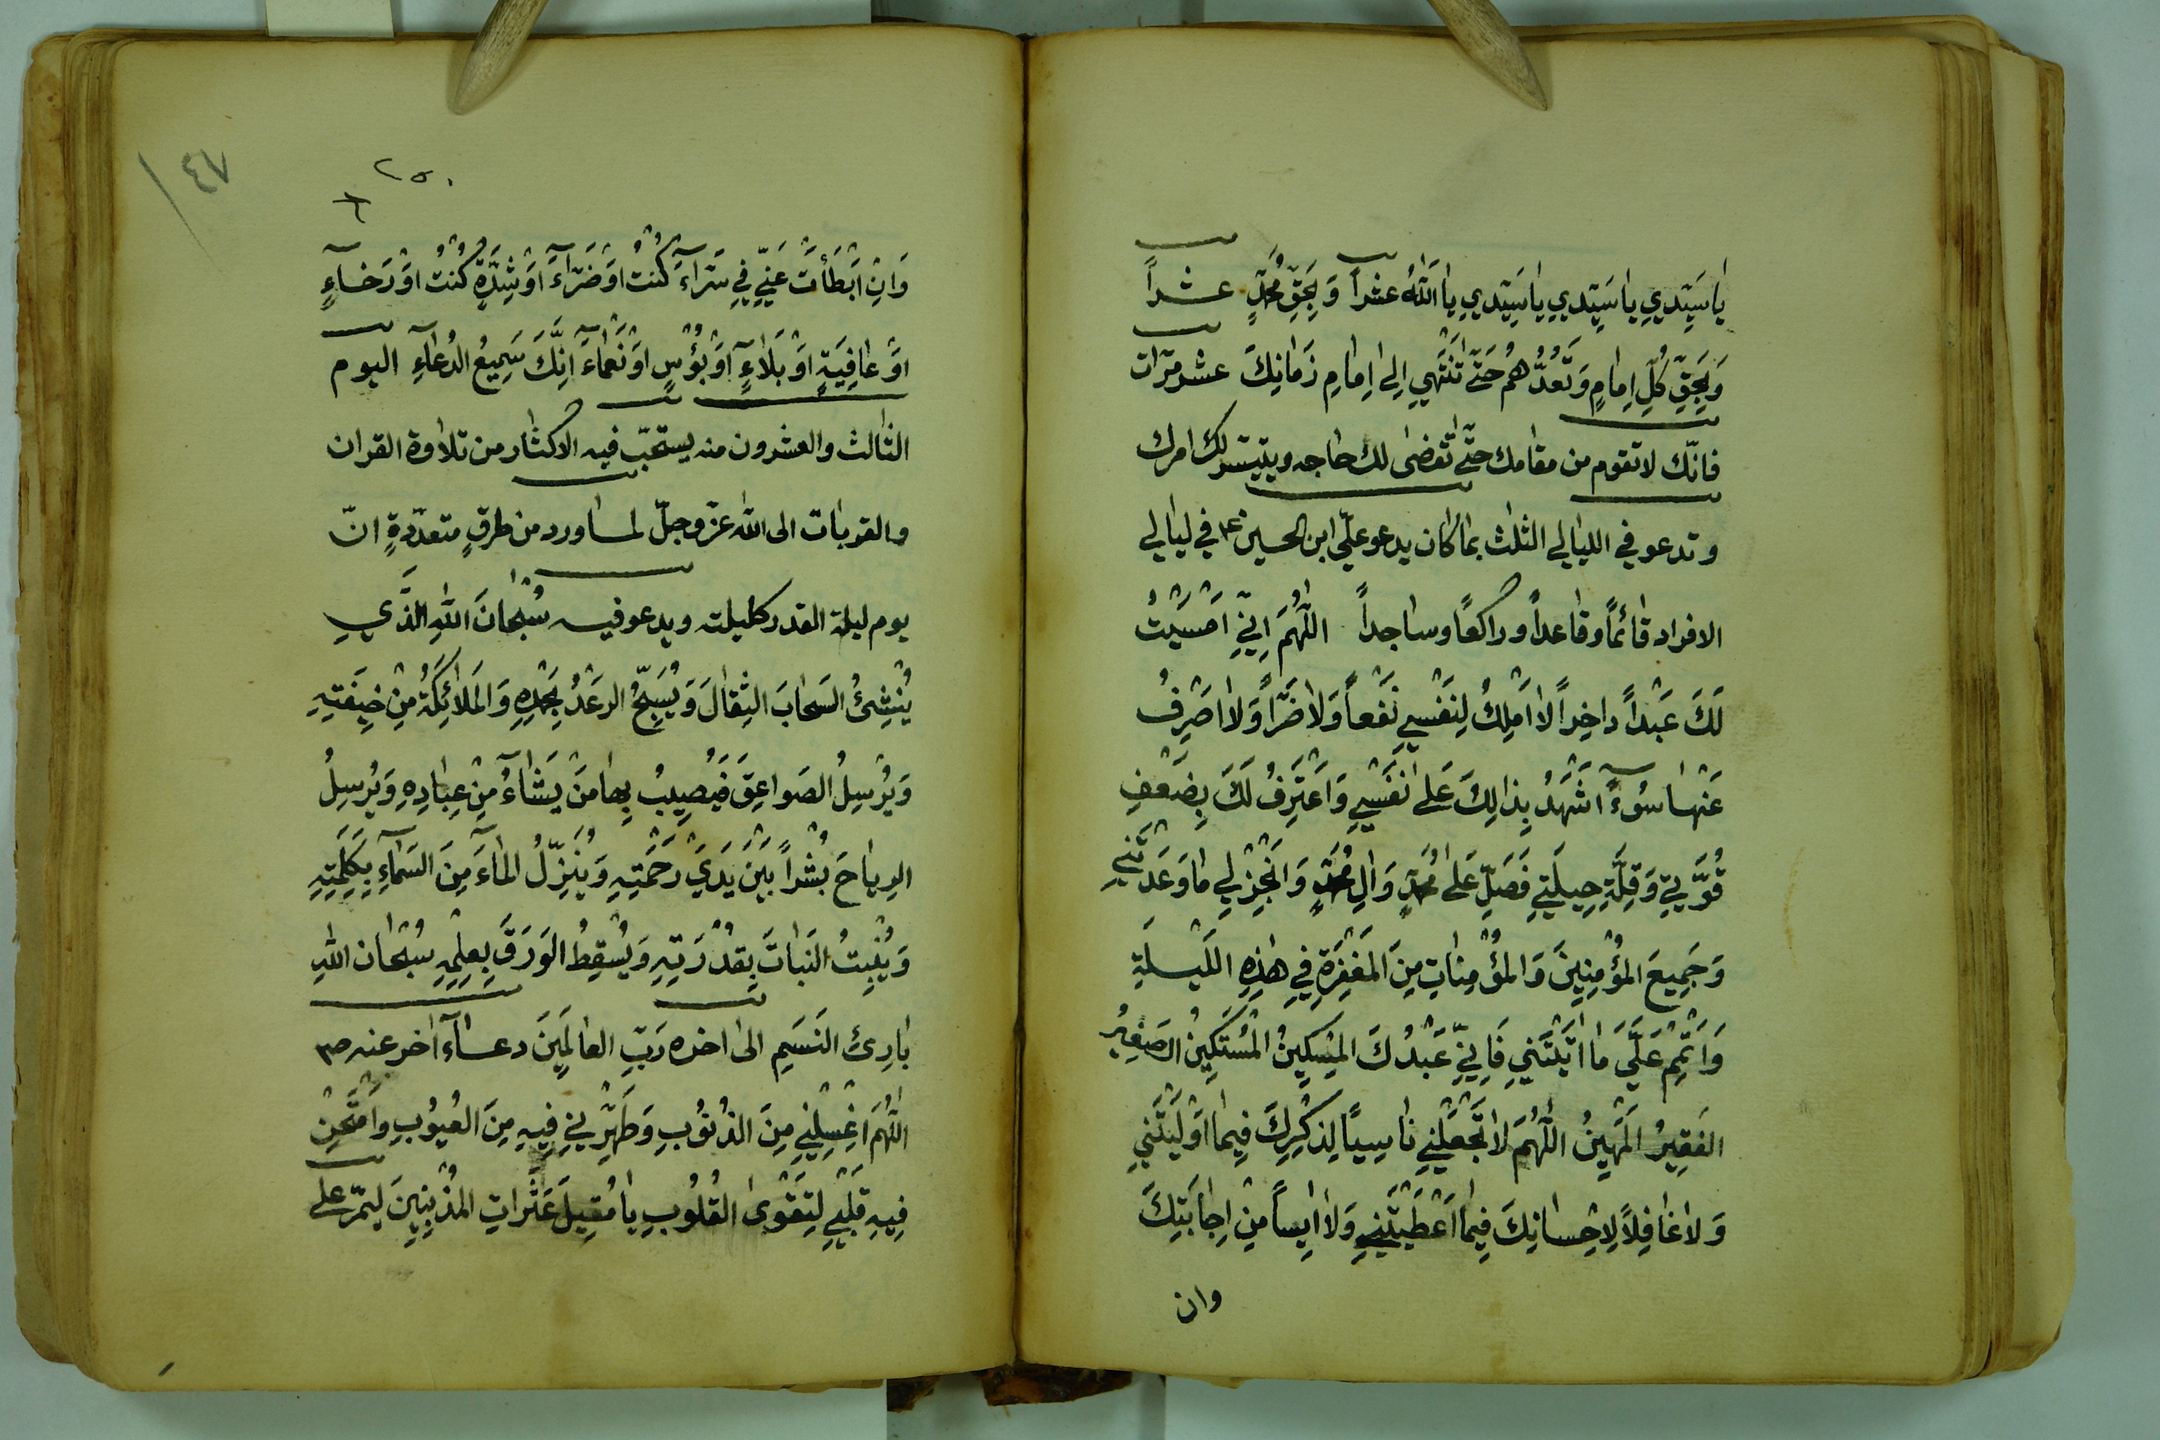 يا سَيِّدِي يا سَيِّدِي يا سَيِّدِي يا اَللهُ عشراً وَ بِحَقِّ مُحَمَّدٍ عشراً
وَ بِحَقِّ كُلِّ اِمامٍ وَ تَعُدُّهُمْ حَتّى تَنْتَهِي اِلى اِمامِ زَمانِكَ عشر مرّات
فانّك لا تقوم من مقامك حتّى تقضى لك حاجه ويتيسّر لك امرك
و تدعو في الليالي الثلث بما كان يدعو علي ابن الحسين ع في ليالي
الافراد قائماً وقاعداً و راكعًا وساجداً اللّهُمَّ اِنّي اَمْسَيْتُ
لَكَ عَبْداً داخِراً لا اَمْلِكُ لِنَفْسِي نَفْعاً وَلا ضَرّاً وَلا اَصْرِفُ
عَنْها سُوءً اَشْهَدُ بِذالِكَ عَلى نَفْسِي وَ اَعْتَرِفُ لَكَ بِضَعْفِ
قُوَّتِي وَ قِلَّةِ حِيلَتِي فَصَلِّ عَلى مُحَمَّدٍ وَ الِ مُحَمَّدٍ وَ اَنْجِزْ لِي ما وَعَدْتَنِي
وَ جَمِيعَ المُؤْمِنِينَ وَ المُؤْمِناتِ مِنَ المَغْفِرَةِ فِي هذِهِ اللَّيْلَةِ
وَ اَتْمِمْ عَلَيَّ ما اتَيْتَنِي فَاِنّي عَبْدُكَ المِسْكِينُ الْمُسْتَكِينُ الصَغِيرُ
الفَقِيرُ المَهِينُ اللّهُمَّ لا تَجْعَلْنِي ناسِيًا لِذِكْرِكَ فِيما اَوْلَيْتَنِي
وَ لا غافِلاً لِاِحْسانِكَ فِيما اَعْطَيْتَنِي وَلا ايِساً مِنْ اِجابَتِكَ
وان
٤٧
٢٥٠
وَ اِنْ اَبْطَأَتْ عَنِّي فِي سَرّآءَ كُنْتُ اَوْ ضَرّآءَ اَوْ شِدَّةٍ كُنْتُ اَوْ رَخآءٍ
اَوْ عافِيَةٍ اَوْ بَلآءٍ اَوْ بُؤْسٍ اَوْ نَعْمآءَ اِنَّكَ سَمِيعُ الدُعآءِ اليوم
الثالث والعشرون منه يستحبّ فيه الاكثار من تلاوة القران
والقربات الى الله عزّ وجلّ لما ورد من طرقٍ متعدّدةٍ انّ
يوم ليلة القدر كليلته و يدعو فيه سُبْحانَ اللهِ الَّذِي
يُنْشِئُ السَحابَ الثِقالَ وَ يُسَبِّحُ الرَعْدُ بِحَمْدِهِ وَ المَلائِكَةُ مِنْ خِيفَتِهِ
وَ يُرْسِلُ الصَواعِقَ فَيُصِيبُ بِها مَنْ يَشآءُ مِنْ عِبادِهِ وَ يُرْسِلُ
الرِياحَ بُشْراً بَيْنَ يَدَيْ رَحْمَتِهِ وَ يُنَزِّلُ المآءَ مِنَ السَمآءِ بِكَلِمَتِهِ
وَ يُنْبِتُ النَباتَ بِقُدْرَتِهِ وَ يُسْقِطُ الوَرَقَ بِعِلْمِهِ سُبْحانَ اللهِ
بارِئِ النَسَمِ الى اخره رَبِّ العالَمِينَ دعآء اخر عنه ص
اللّهُمَّ اغْسِلْنِي مِنَ الذُنُوبِ وَ طَهِّرْنِي فِيهِ مِنَ العُيُوبِ وَ امْتَحِنْ
فِيهِ قَلْبِي لِتَقْوى القُلُوبِ يا مُقِيلَ عَثَراتِ المُذْنِبِينَ ليمرّ على